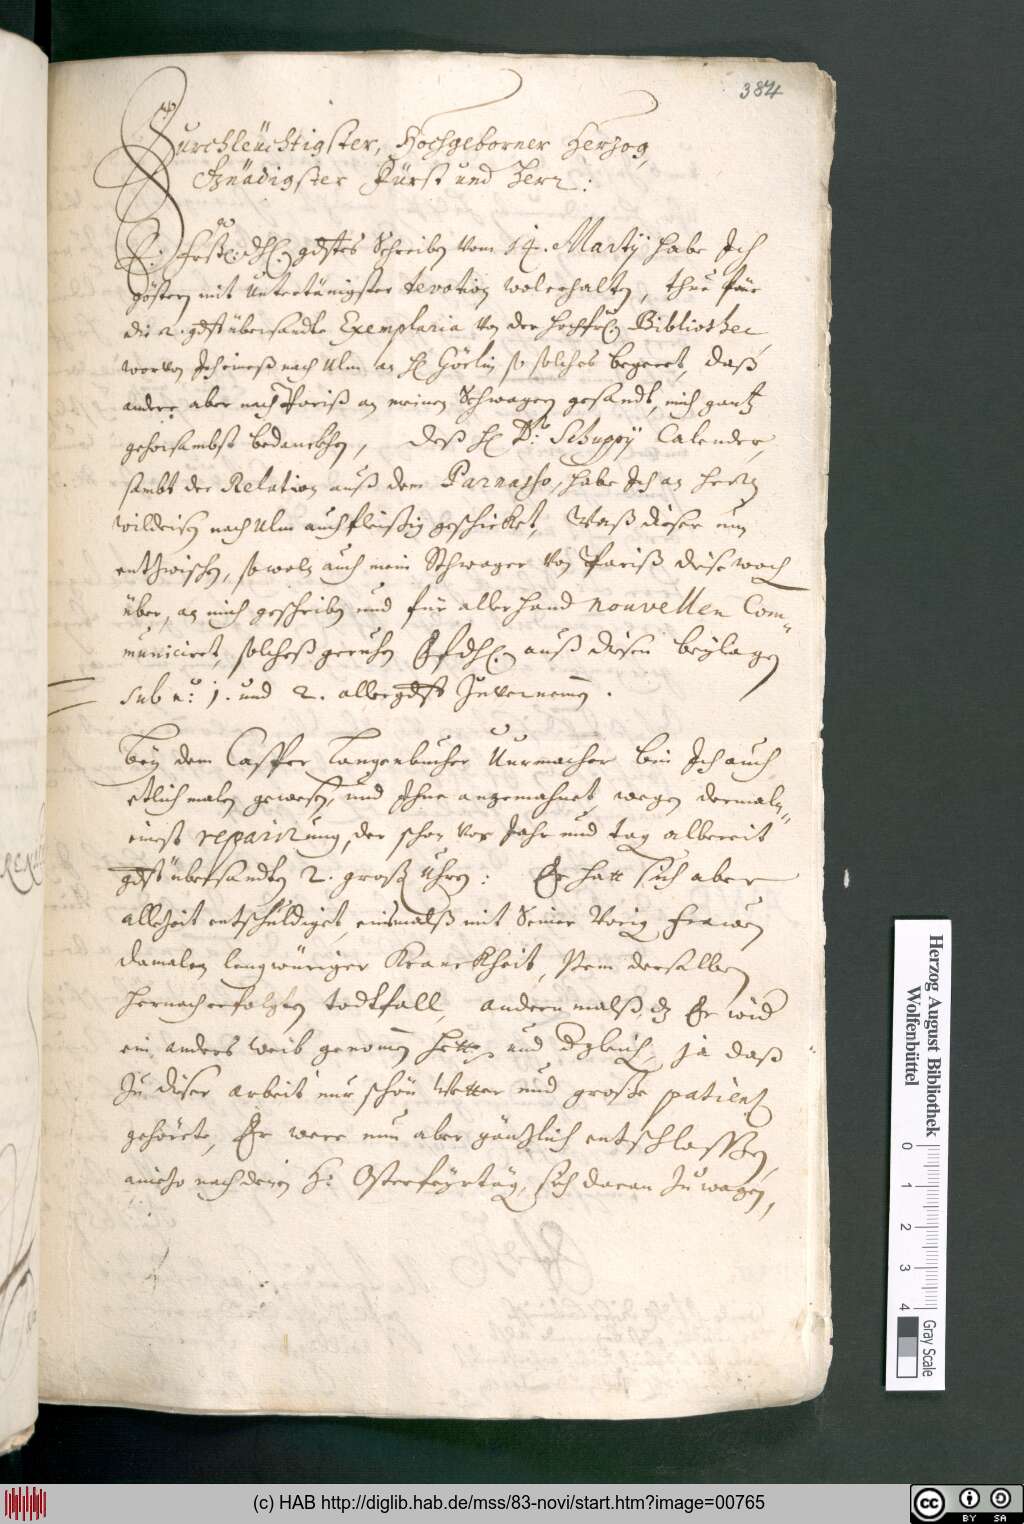 384
Durchleüchtigster, Hochgeborner Herzog,
Gnädigster Fürst und Herr:
E: gdstes Schreiben vom 14. Martÿ habe Ich
göstern mit Untertänigster devotion wolerhalten, thue für
die 2. gdst übersandte Exemplaria von der Bibliothec,
worvon Ich eineß nach Ulm an H. Görlin so solches begeret, daß
andere aber nach Pariß an meinen Schwagern gesandt, mich gantz
gehorsambst bedanckhen, deß H. Dr. Schuppÿ Calender,
sambt der Relation auß dem Parnasso, habe Ich an Herrn
Wildeisen nach Ulm auch fleissig geschicket, Waß dieser nun
entzwischen, sowoln auch mein Schwager von Pariß dise woch
über, an mich geschriben und für allerhand nouvellen Com-
municiret, solcheß geruhen EfdH. auß disen beÿlagen
sub no: 1. und 2. allergdst Zu vernemen.
Beÿ dem Casper Langenbucher Uurmacher bin Ich auch
etlich malen gewesen, und Ihne angemahnet, wegen dermaln-
einst repairung, der schon vor Jahr und tag albereit
gdst übersandten 2. groß Uhren: Er hatt sich aber
allezeit entschuldiget, einsmalß mit Seiner Vorig Frawen
damalen langwüriger Kranckheit, Item derselben
hernach erfolgten todtfall, andern malß, dz Er wid
ein anders weib genomen hette, und dzleich, ja daß
Zu diser arbeit nur schön Wetter und große patientz
gehörete, Er were nun aber gäntzlich entschlossen,
anietzo nach denen H: Osterfeÿrtäg, sich daran Zu wagen,
Herzog August Bibliothek
Wolfenbüttel
0 1 2 3 4
Gray Scale
(c) HAB http://diglib.hab.de/mss/83-novi/start.htm?image=00765
cc BY SA